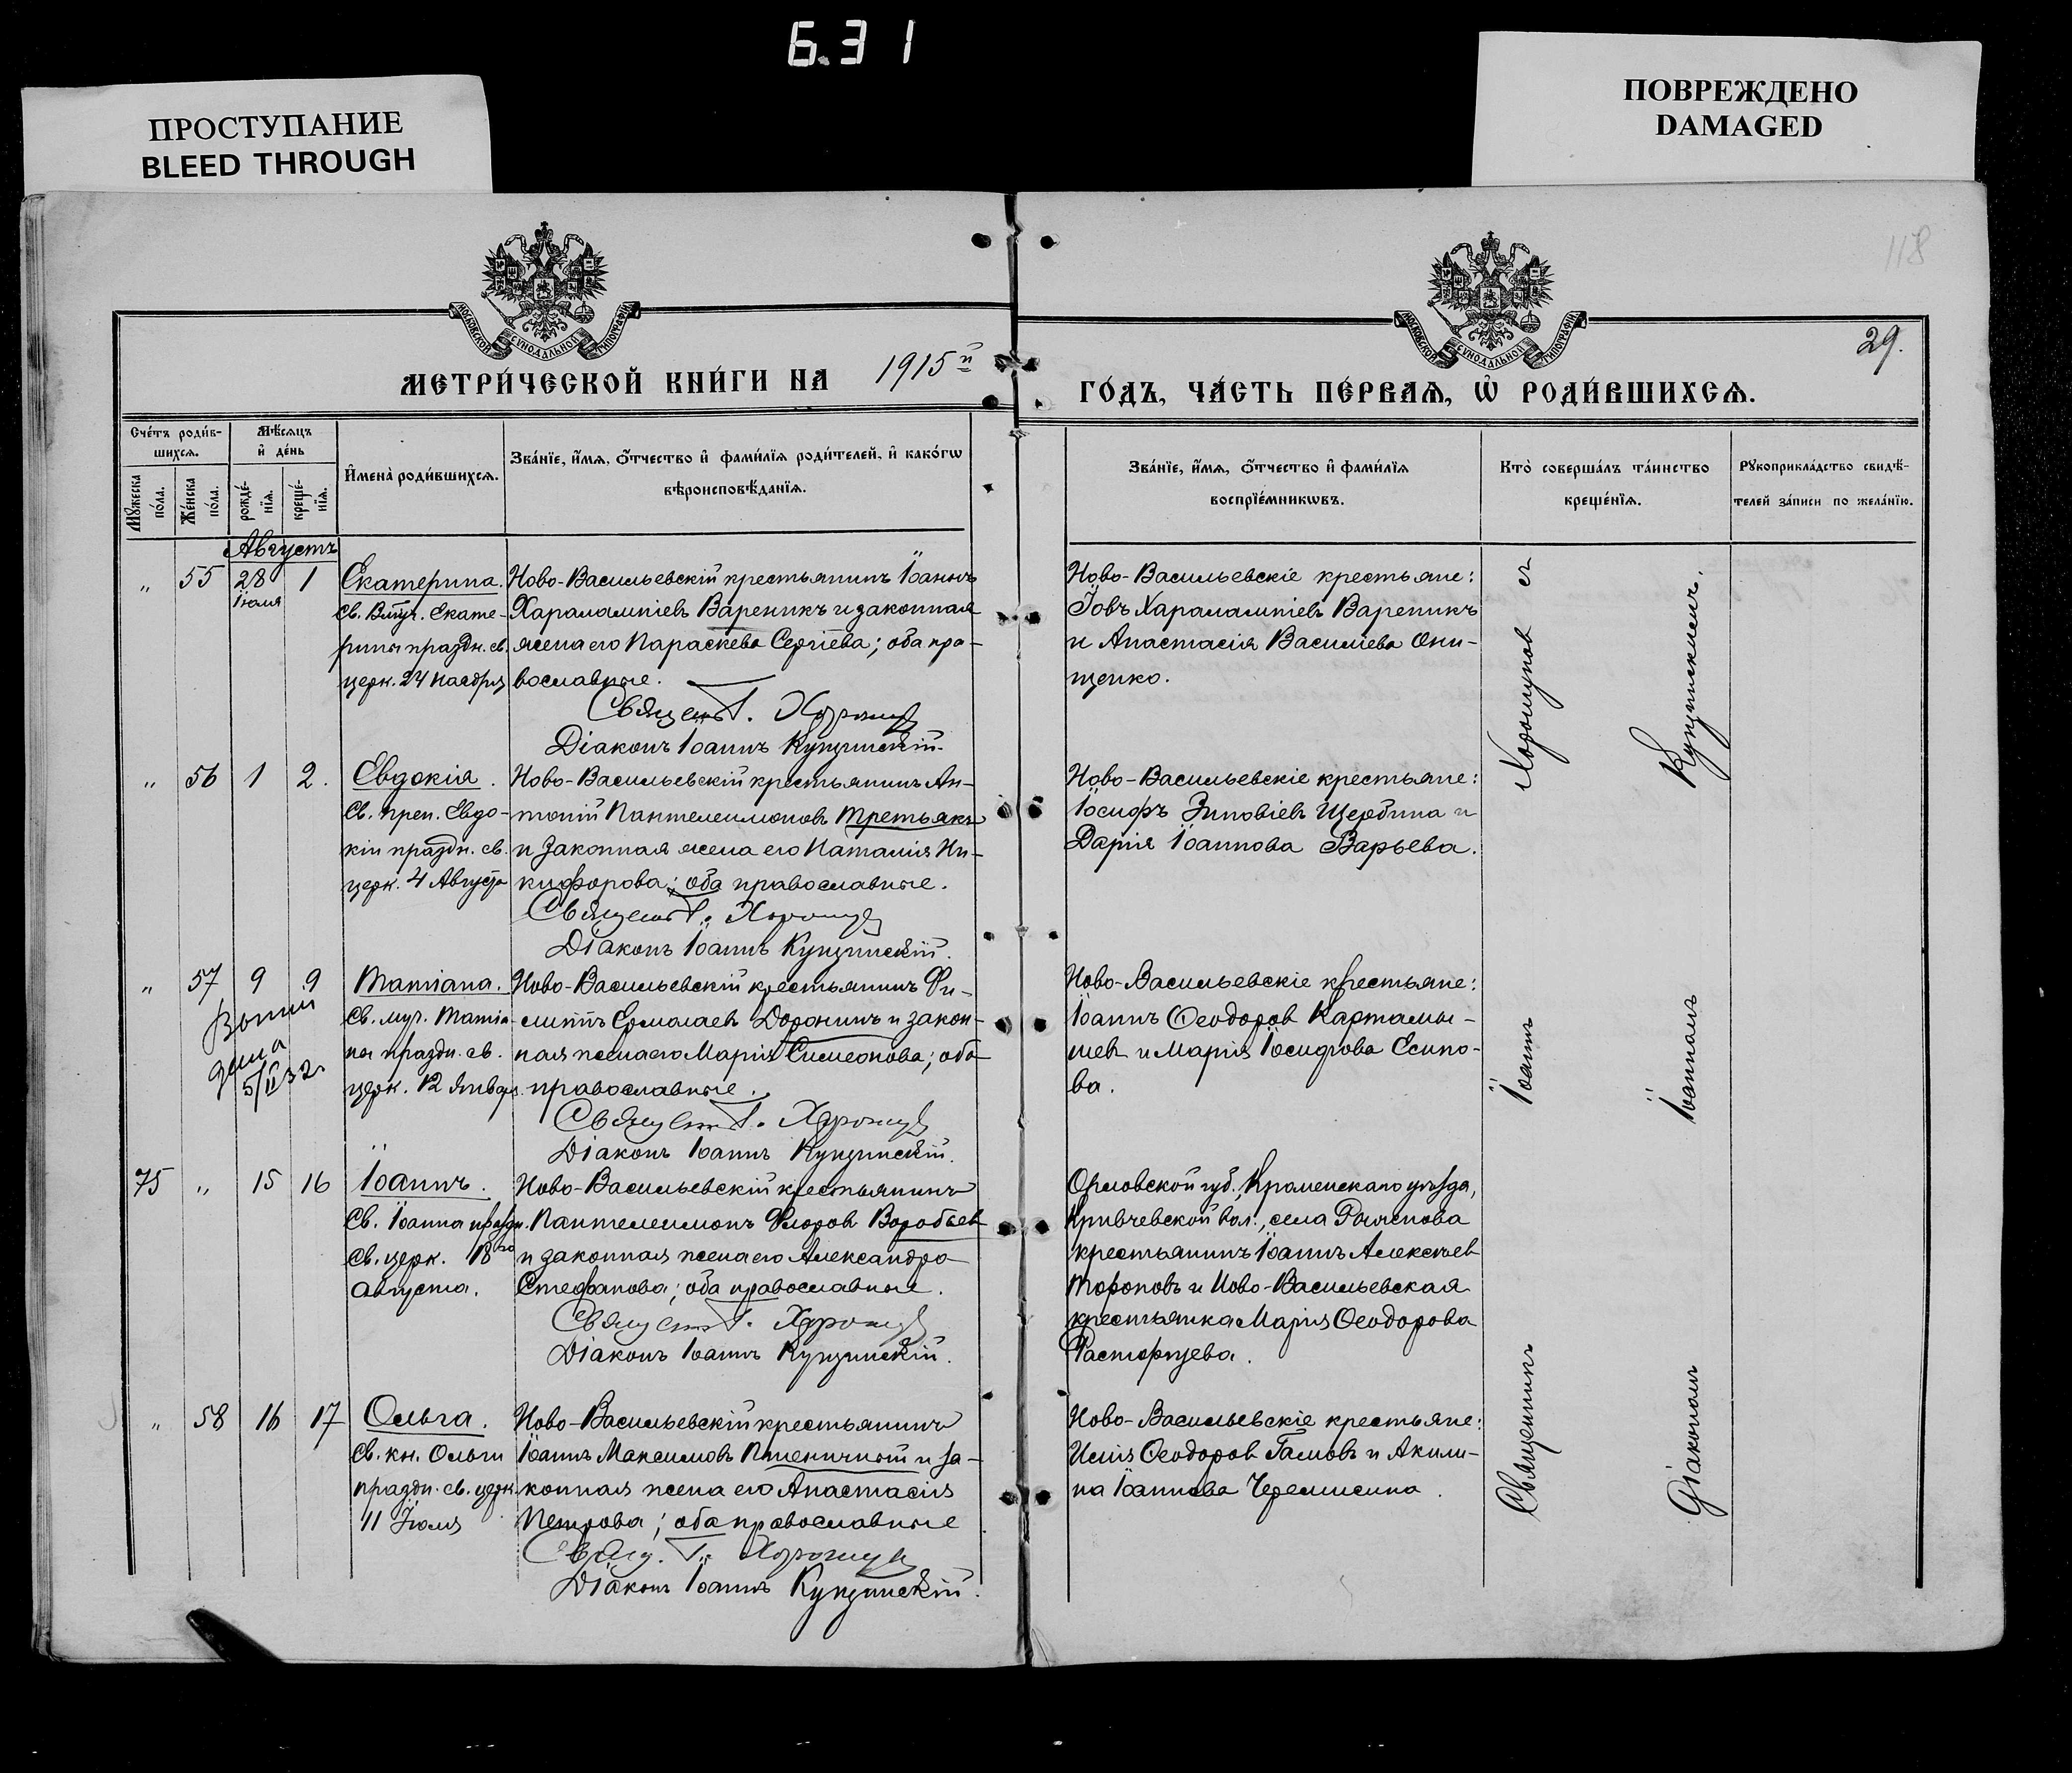 6.31
ПРОСТУПАНИЕ
BLEED THROUGH
ПОВРЕЖДЕНО
DAMAGED
118
29.
МОСКОВСКОЙ СУНОДАЛЬНОЙ ТИПОГРАФІИ
МОСКОВСКОЙ СУНОДАЛЬНОЙ ТИПОГРАФІИ
МЕТРИ́ЧЕСКОЙ КНИ́ГИ НА 1915й
ГО́ДЪ, ЧА́СТЬ ПЕ́РВАѦ, Ѡ҆ РОДИ́ВШИХСѦ.
Сче́тъ роди́в-
шихсѧ.
Мꙋ́жеска
по́ла.
Же́нска
по́ла.
Мѣ́сѧцъ
и҆ де́нь
рожде́-
нїѧ.
креще́-
нїѧ.
И҆мена̀ роди́вшихсѧ.
Зва́нїе, и҆́мѧ, ѻ҆́тчество и҆ фами́лїѧ роди́телей, и҆ како́гѡ
вѣроисповѣ́данїѧ.
Зва́нїе, и҆́мѧ, ѻ҆́тчество и҆ фами́лїѧ
воспрїе́мникѡвъ.
Кто̀ соверша́лъ та́инство
креще́нїѧ.
Рꙋкоприкла́дство свидѣ́-
телей за́писи по жела́нїю.
Августъ
" 55 28 Іюля 1
Екатерина.
Св. Вмуч. Екате-
рины праздн. св.
церк. 24 Ноября
Ново-Васильевскій крестьянинъ Іоаннъ
Харалампіевъ Вареникъ и законная
жена его Параскева Сергіева; оба пра-
вославные.
Священ. Г. Хорошу
Діаконъ Іоаннъ Кунцинскій.
Ново-Васильевскіе крестьяне:
Іовъ Харалампіевъ Вареникъ
и Анастасія Василіева Они-
щенко.
" 56 1 2.
Евдокія.
Св. преп. Евдо-
кіи праздн. св.
церк. 4 Августа
Ново-Васильевскій крестьянинъ Ан-
тоній Пантелеимоновъ Третьякъ
и законная жена его Наталія Ни-
кифорова; оба православные.
Священ. Г. Хорошу
Діаконъ Іоаннъ Кунцинскій.
Ново-Васильевскіе крестьяне:
Іосифъ Зиновіевъ Щербина и
Дарія Іоаннова Варьева.
" 57 9 9
5/II 32
Татіана.
Св. муч. Татіа-
ны праздн. св.
церк. 12 Январ.
Ново-Васильевскій крестьянинъ Фи-
липпъ Ермолаевъ Доронинъ и закон-
ная жена его Марія Симеонова; оба
православные.
Священ. Г. Хорошу
Діаконъ Іоаннъ Кунцинскій.
Ново-Васильевскіе крестьяне:
Іоаннъ Ѳеодоров Картамы-
шев и Марія Іосифова Есипо-
ва.
75 " 15 16
Іоаннъ.
Св. Іоанна праздн.
св. церк. 18го
Августа.
Ново-Васильевскій крестьянинъ
Пантелеимонъ Флоров Воробьев
и законная жена его Александра
Стефанова; оба православные.
Священ. Г. Хорошу
Діаконъ Іоаннъ Кунцинскій.
Орловской губ., Кроменскаго уѣзда,
Кривчевской вол., села
крестьянинъ Іоаннъ Алексѣев
Тороповъ и Ново-Васильевская
крестьянка Марія Ѳеодорова
Расторгуева.
" 58 16 17
Ольга.
Св. кн. Ольги
праздн. св. церк.
11 Іюля
Ново-Васильевскій крестьянинъ
Іоаннъ Максимовъ Пшеничный и за-
конная жена его Анастасія
Петрова; оба православные
Свящ. Г. Хорошу
Діаконъ Іоаннъ Кунцинскій.
Ново-Васильевскіе крестьяне:
Илія Ѳеодоров Гамовъ и Акили-
на Іоаннова Черемисина.
Священникъ Іоаннъ Хорошунов съ
Діакономъ Іоанномъ Кунцинскимъ.